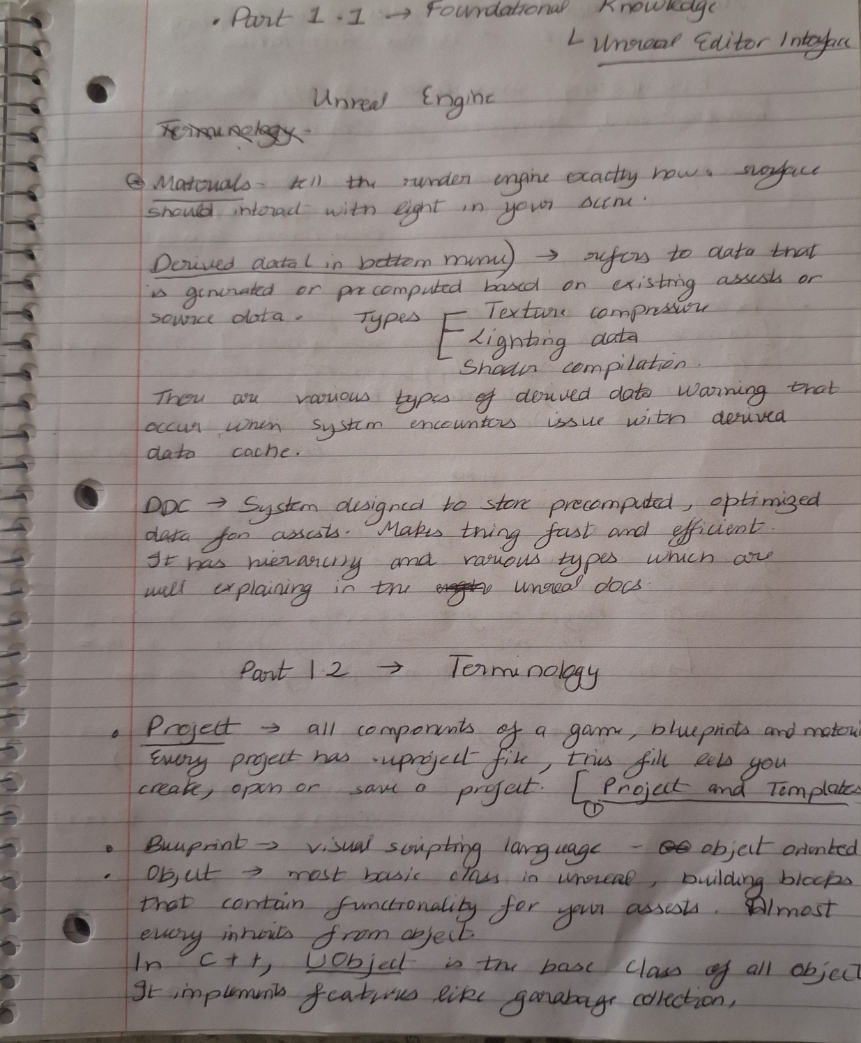 • Part 1.1 → Foundational Knowledge
└ Unreal Editor Interface
Unreal Engine
Terminology.
Materials - tell the render engine exactly how a surface
should interact with light in your scene.
Derived data (in bottom menu) → refers to data that
is generated or precomputed based on existing assests or
source data. Types [ Texture compression
Lighting data
Shader compilation.
There are various types of derived data warning that
occur when system encounters issue with derived
data cache.
DDC → System designed to store precomputed, optimized
data for assests. Makes thing fast and efficient.
It has hierarchy and various types which are
well explaining in the unreal docs.
Part 1.2 → Terminology
• Project → all components of a game, blueprints and
Every project has .uproject file, this file lets you
create, open or save a project. [ Project and Templates
①
• Blueprint → visual scripting language - object oriented
• Object → most basic class in unreal, building blocks
that contain functionality for your assests. Almost
every inherits from object.
In C++, UObject is the base class of all object
It implements features like garabage collection,